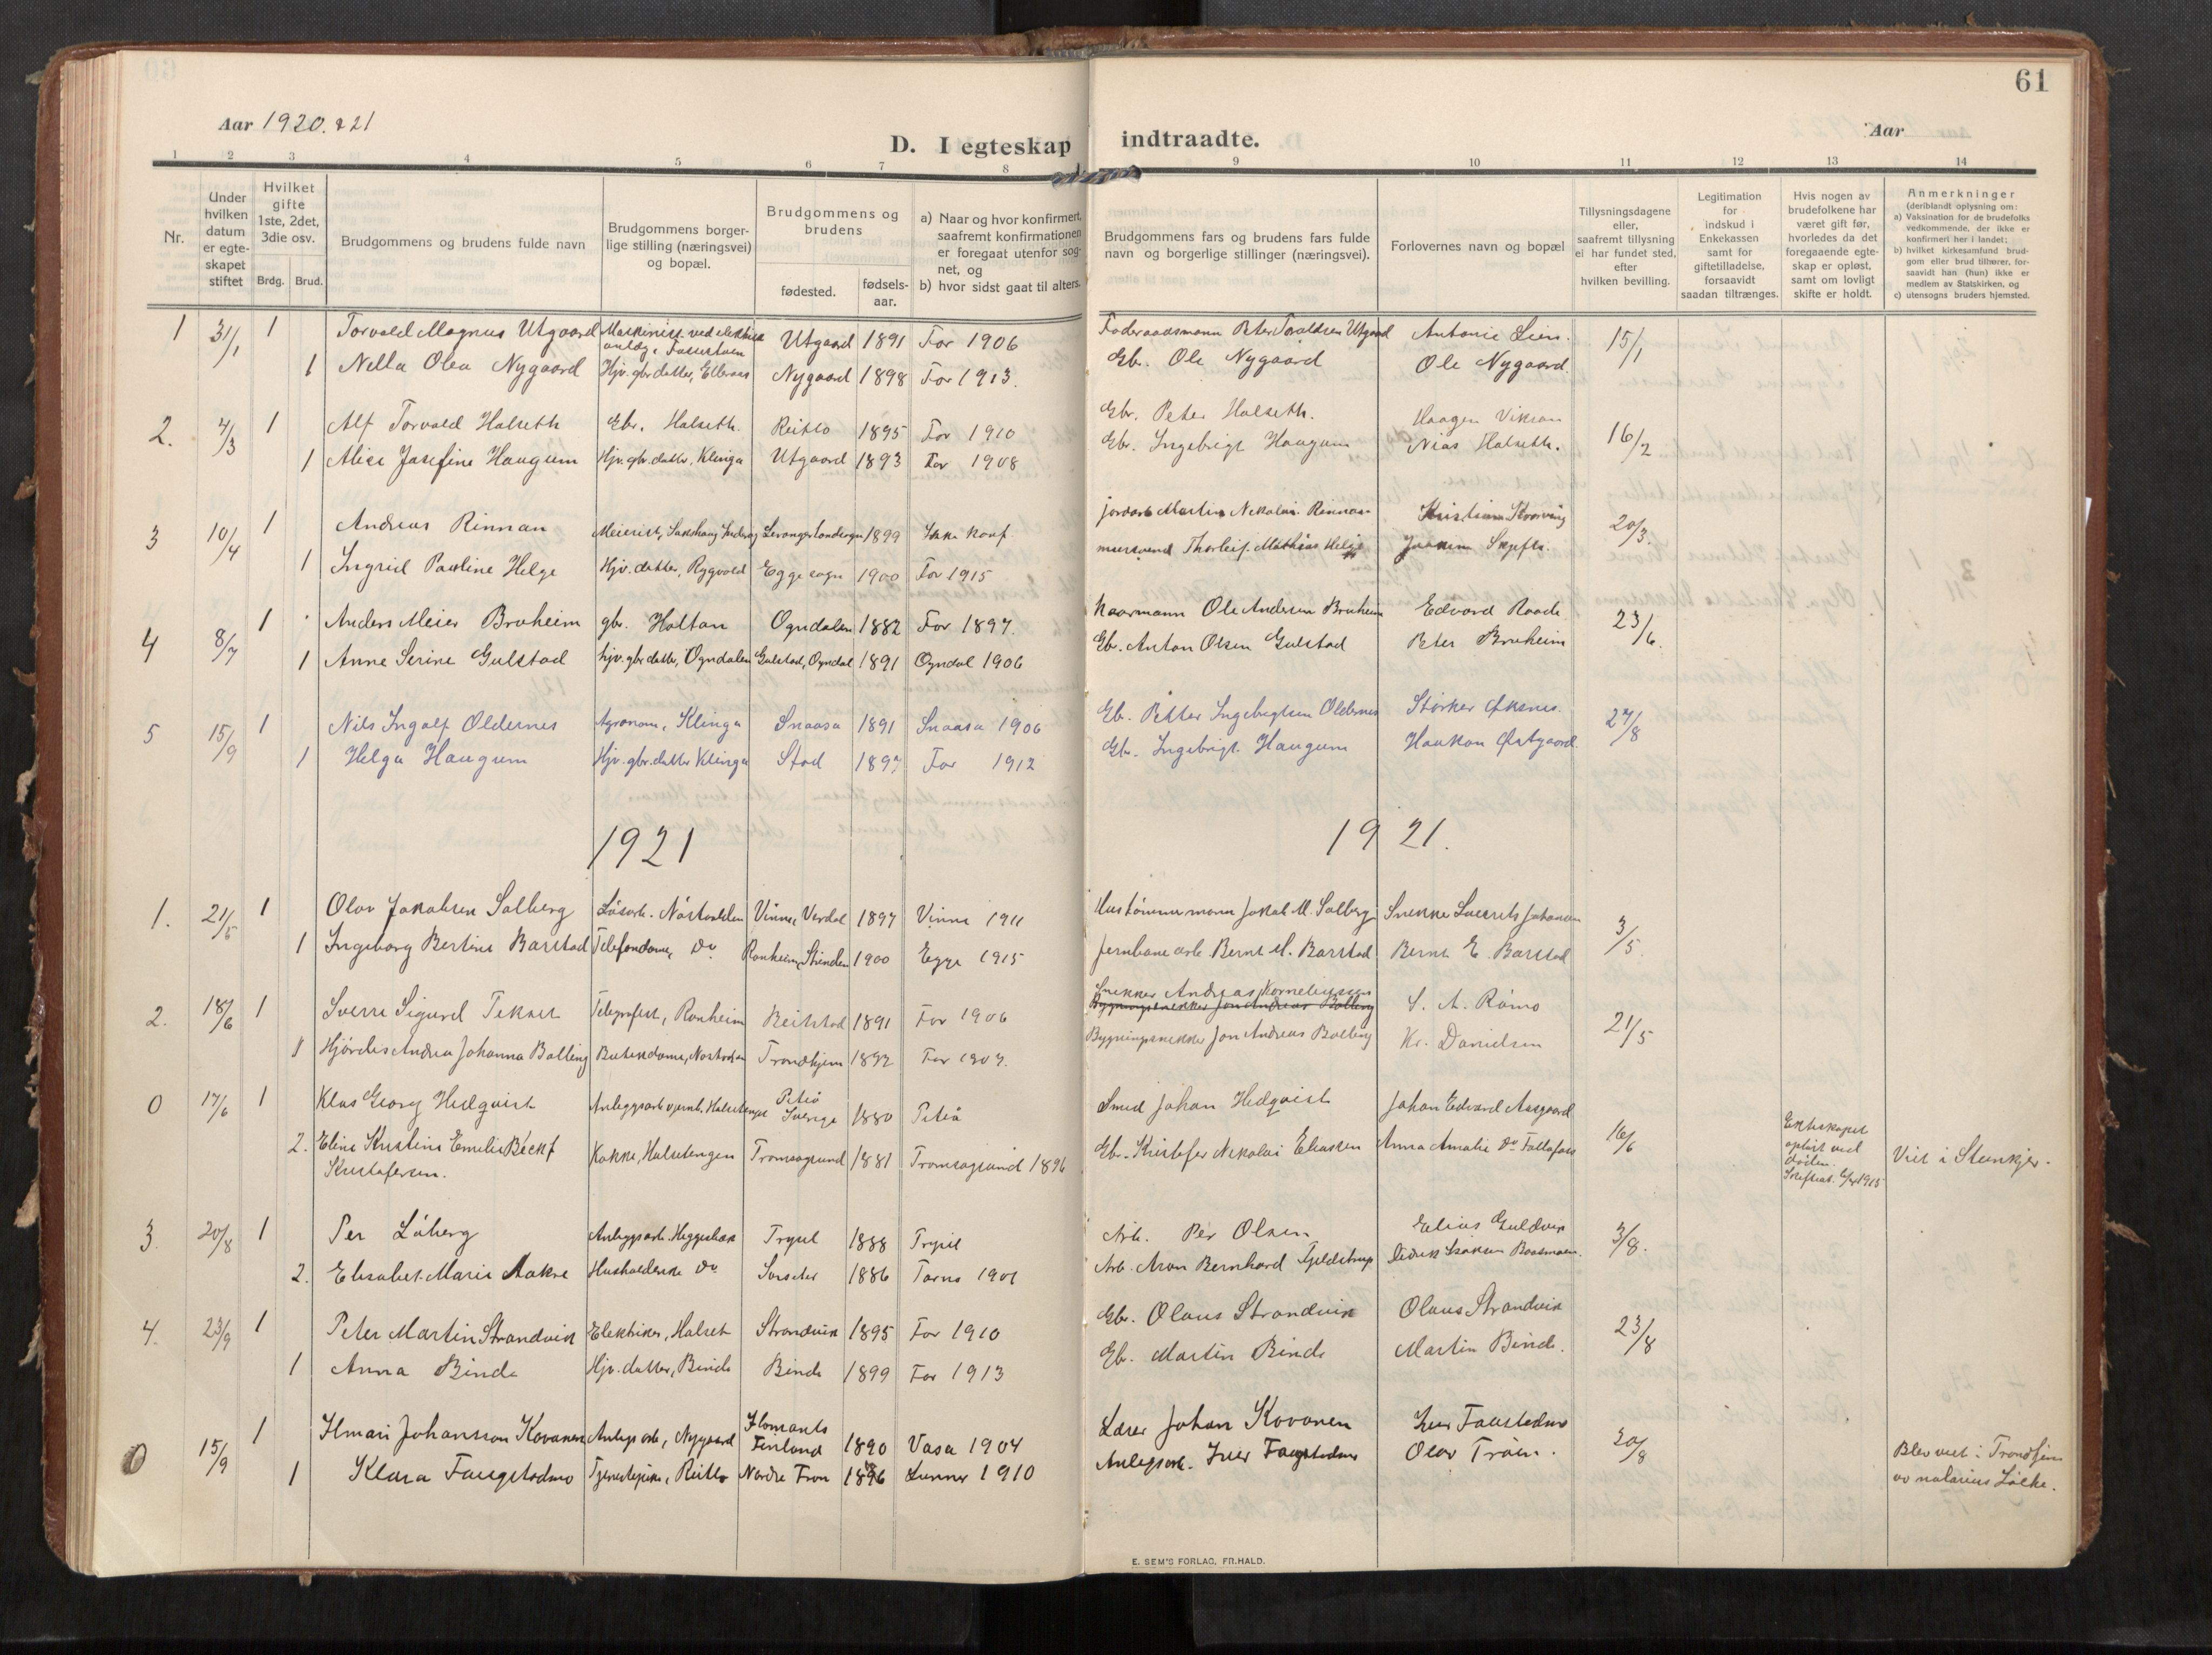 61
Aar 1920. & 21
Aar
D. I egteskap indtraadte.
1 2 3 4 5 6 7 8 9 10 11 12 13 14
Nr.
Under hvilken datum er egte-skapet stiftet
Hvilket gifte 1ste, 2det, 3die osv.
Brdg. Brud.
Brudgommens og brudens fulde navn
Brudgommens borger-lige stilling (næringsvei) og bopæl.
Brudgommens og brudens
fødested.
fødsels-aar.
a) Naar og hvor konfirmert, saafremt konfirmationen er foregaat utenfor sog-net, og
b) hvor sidst gaat til alters.
Brudgommens fars og brudens fars fulde navn og borgerlige stillinger (næringsvei).
Forlovernes navn og bopæl
Tillysningsdagene eller, saafremt tillysning ei har fundet sted, efter hvilken bevilling.
Legitimation for indskud i Enkekassen samt for giftetilladelse, forsaavidt saadan tiltrænges.
Hvis nogen av brudefolkene har været gift før, hvorledes da det foregaaende egte-skap er opløst, samt om lovligt skifte er holdt.
Anmerkninger
(deriblandt oplysning om:
a) Vaksination for de brudefolks vedkommende, der ikke er konfirmert her i landet;
b) hvilket kirkesamfund brud-gom eller brud tilhører, for-saavidt han (hun) ikke er medlem av Statskirken, og
c) utensogns bruders hjemsted.
1 31/1 1 Torvald Magnus Utgaard Maskinist ved elektrisk anlæg, Utgaard 1891 For 1906 Peter Utgaard Antonie Lein. 15/1
1 Nella Olea Nygaard Hjv. gbr. datter, Nygaard 1898 For 1913. Gb. Ole Nygaard Ole Nygaard.
2. 4/3 1 Alf Torvald Halseth Gbr. Halseth. Reitlo 1895 For 1910 Gbr. Peter Halseth. Haagen 16/2
1 Alise Josefine Haugum Hjv. gbr. datter, Klinga Utgaard 1893 For 1908 Gbr. Ingebrigt Haugum Nias Halseth.
3 10/4 1 Andreas Rinnan Meierist, Sakshaug 1899 Ikke konf. Martin Nikolai Rinnan 20/3
1 Ingrid Pauline Helge Hjv. datter, Rygvold Egge sogn 1900 For 1915 Thorleif Mathias Helge Skjefte.
4 8/7 1 Anders Meier Bruheim gbr. Holtan Ogndalen 1882 For 1897. Kaarmann Ole Andersen Bruheim Edvard Raade 23/6.
1 Anne Serine Gulstad hjv. gbr. datter, Ogndalen Gulstad, Ogndal 1891 Ogndal 1906 Gb. Anton Olsen Gulstad Peter Bruheim
5 15/9 1 Nils Ingolf Oldernes Agronom, Klinga Snaasa 1891 Snaasa 1906 Gb. Petter Ingebrigtsen Oldernes Størker Øksnes. 27/8
1 Helga Haugum Hjv. gbr. datter Klinga Stod 1897 For 1912 Gb. Ingebrigt Haugum Haakon Østgaard.
1921 1921.
1. 21/5 1 Olav Jakobsen Salberg Løsarb. Nøstvolden Vinne, Verdal 1897 Vinne 1911 Hustømmermann Jakob M. Salberg Snekker Johansen 3/5.
1 Ingeborg Bertine Barstad Telefondame, Do Ranheim, Strinden 1900 Egge 1915 Jernbanearb. Bernt M. Barstad Bernt E. Barstad
2. 18/6 1 Sverre Sigurd Tekset Telegrafist, Ranheim Beitstad 1891 For 1906 Snekker Andreas Korneliussen S. A. Rømo 21/5
Bygningssnekker Jon Andreas Balling
1 Hjørdis Andrea Johanna Balling Butikdame, Trondhjem 1892 For 1907. Bygningssnekker Jon Andreas Balling Kr. Danielsen
0 17/6 1 Klas Georg Hedqvist Anlegsarb. Piteå Sverige 1880 Piteå Smed Johan Hedqvist Johan Edvard Aasgaard 16/6
2. Eline Kristine Emelie Beck f. Kristofersen. Kokke, Halsetengen Tromsøsund 1881 Tromsøsund 1896 Gb. Kristofer Nikolai Eliassen Anna Amalie Do Egteskapet opløst ved døden. Viet i Steinkjer.
3. 20/8 1 Per Løberg Anlegsarb. Heggesbæk Trysil 1888 Trysil Arb. Per Olsen Elius 3/8.
2. Elisabet Marie Aakre Husholderske Do Sørseter 1886 1901 Arb. Aron Bernhard Fjeldstrup
4. 23/9 1 Peter Martin Strandvik Elektriker, Halset Strandvik 1895 For 1910 Gbr. Olaus Strandvik Olaus Strandvik 23/8
1 Anna Binde Hjv. datter, Binde Binde 1899 For 1913 Gb. Martin Binde Martin Binde.
0 15/9 1 Ilmari Johansson Kovanen Anlegsarb., Nygaard Ilomants Finland 1890 Vasa 1904 Lærer Johan Kovanen Iver Faugstadmo 30/8 Blev viet i Trondhjem
1 Klara Faugstadmo Tjenestepike, Reitlo Nordre Fron 1896 Lunner 1910 Anlegsarb. Iver Faugstadmo Olav Trøen. av notarius Løcke.
E. SEM'S FORLAG, FR.HALD.